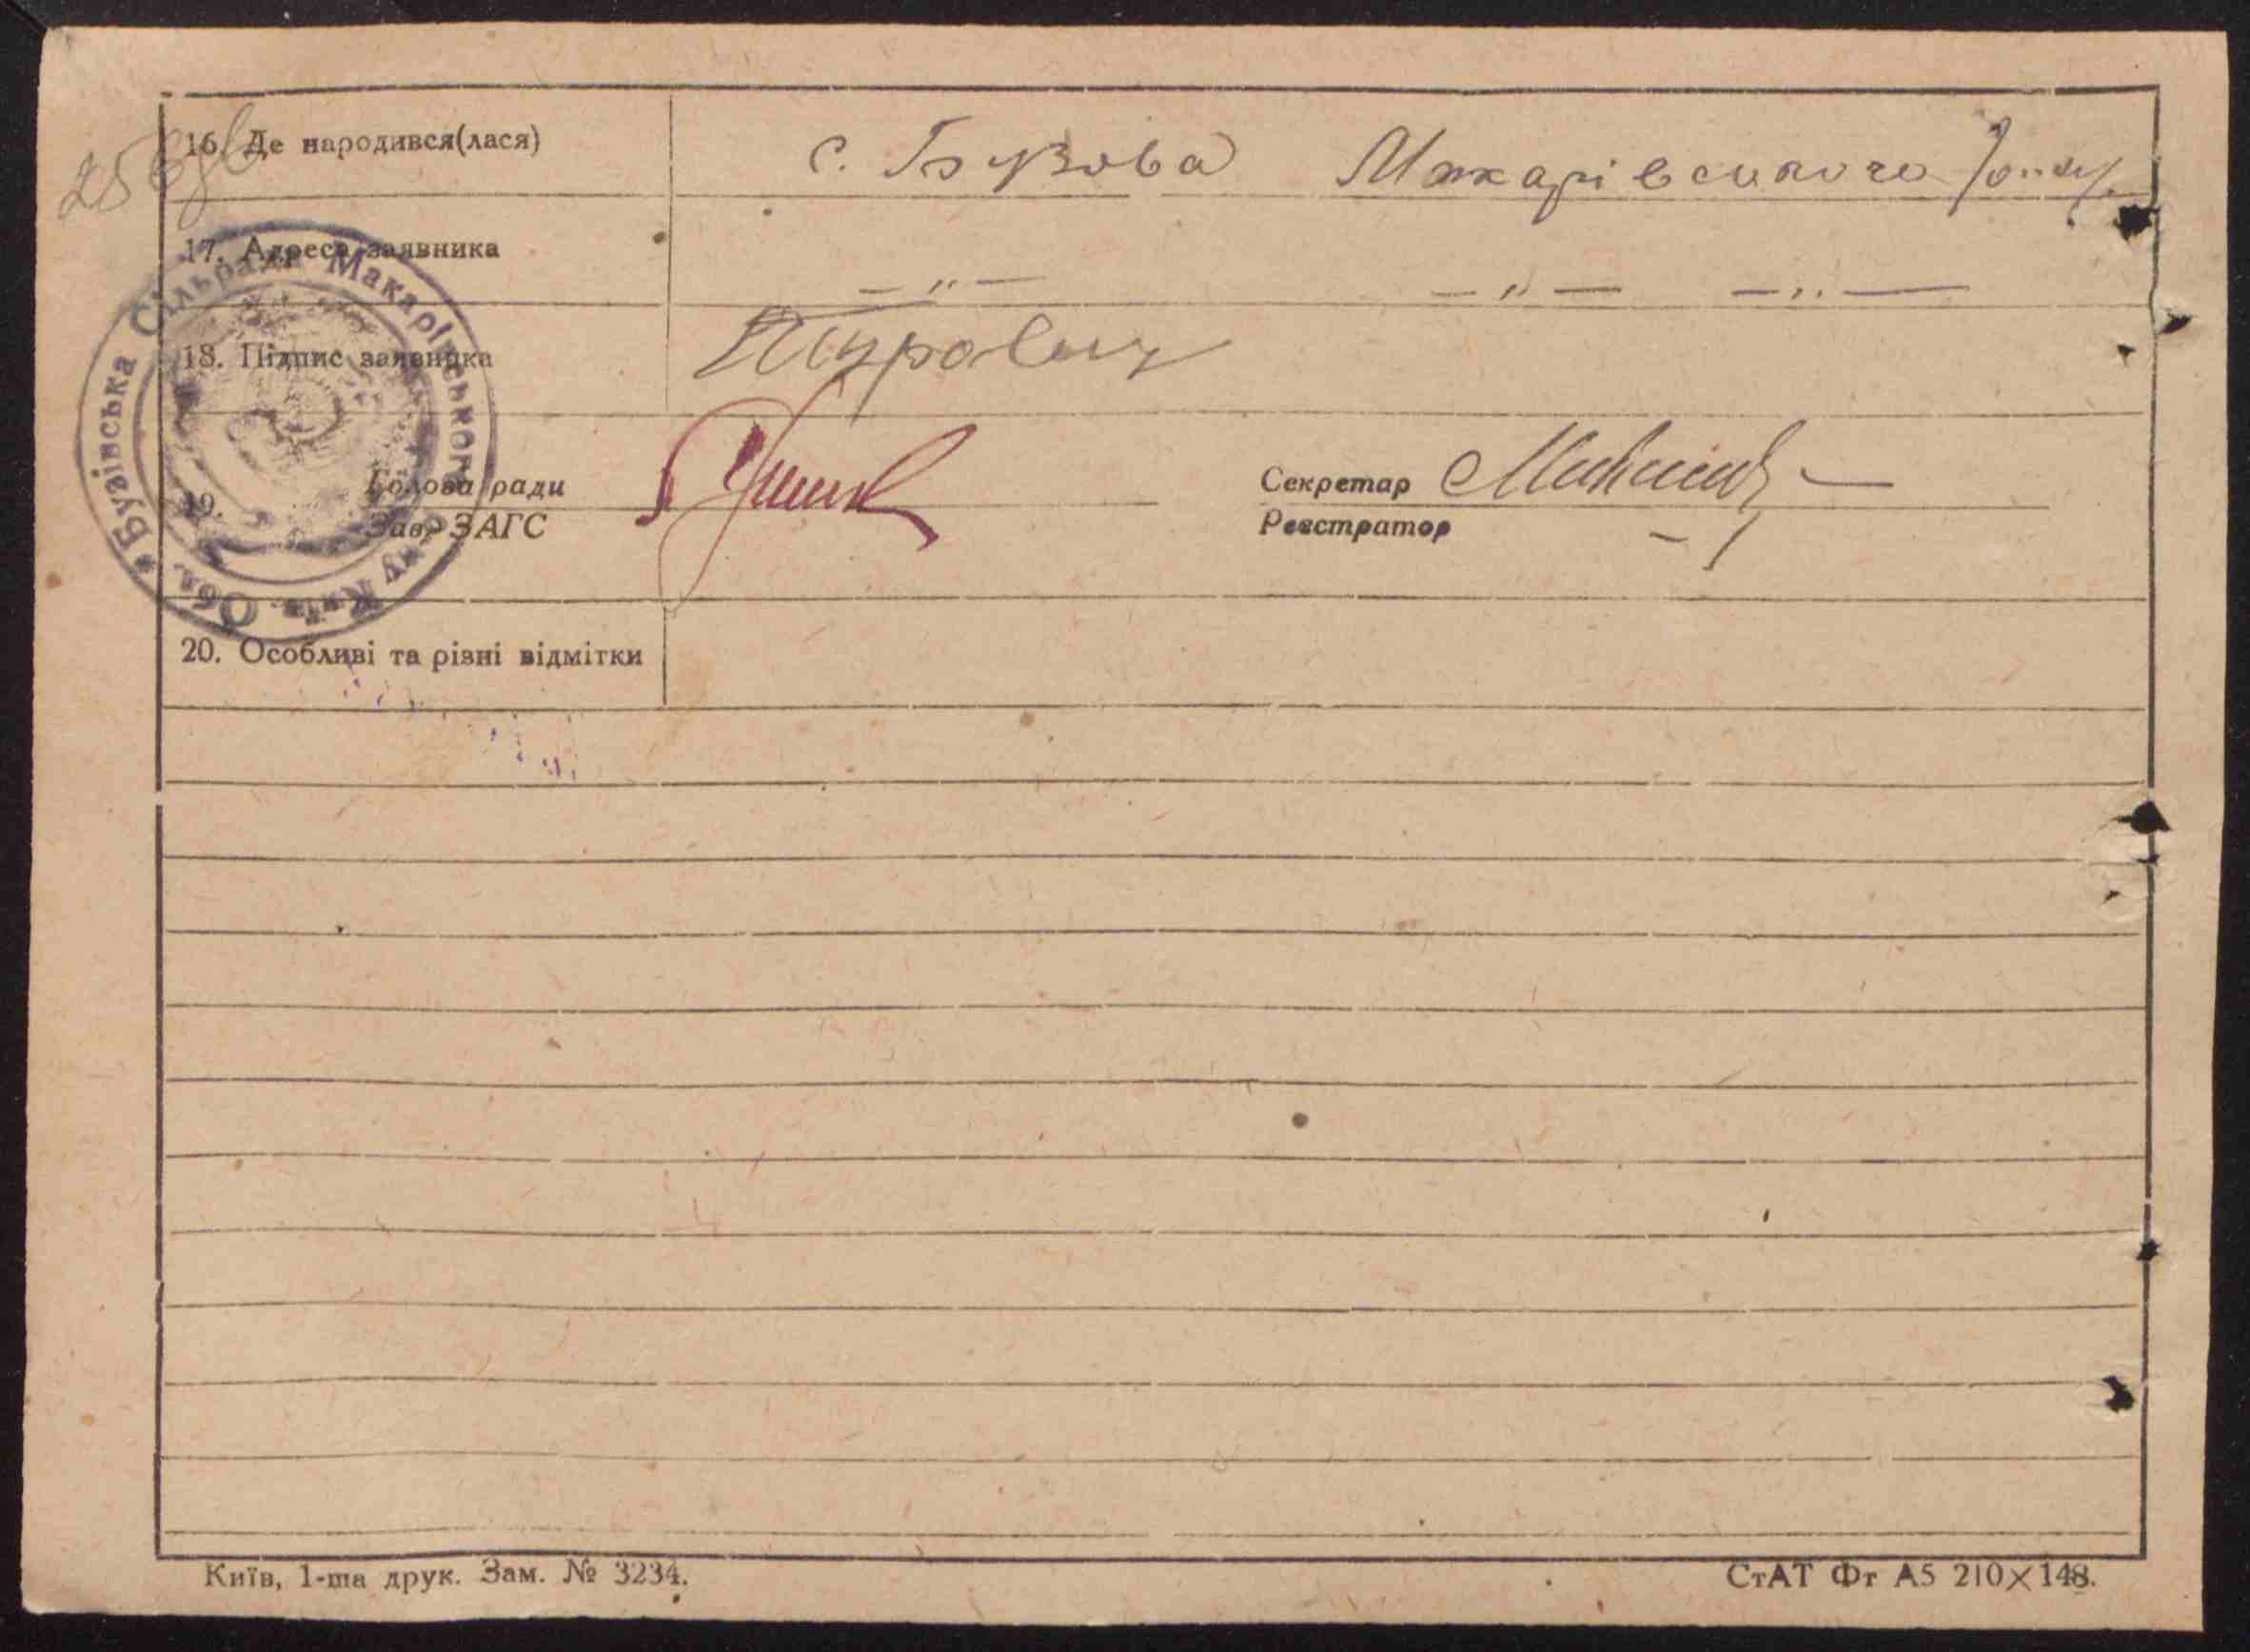 256зв
16. Де народився(лася) с. Бузова Макарівського р-ну
17. Адреса заявника — „ — — „ — — „ —
18. Підпис заявника
Бузівська Сільрада Макарівського р-ну Київ. Обл.
19. Голова ради Секретар
Зав. ЗАГС Реєстратор
20. Особливі та різні відмітки
Київ, 1-ша друк. Зам. № 3234.
СтАТ Фт А5 210×148.